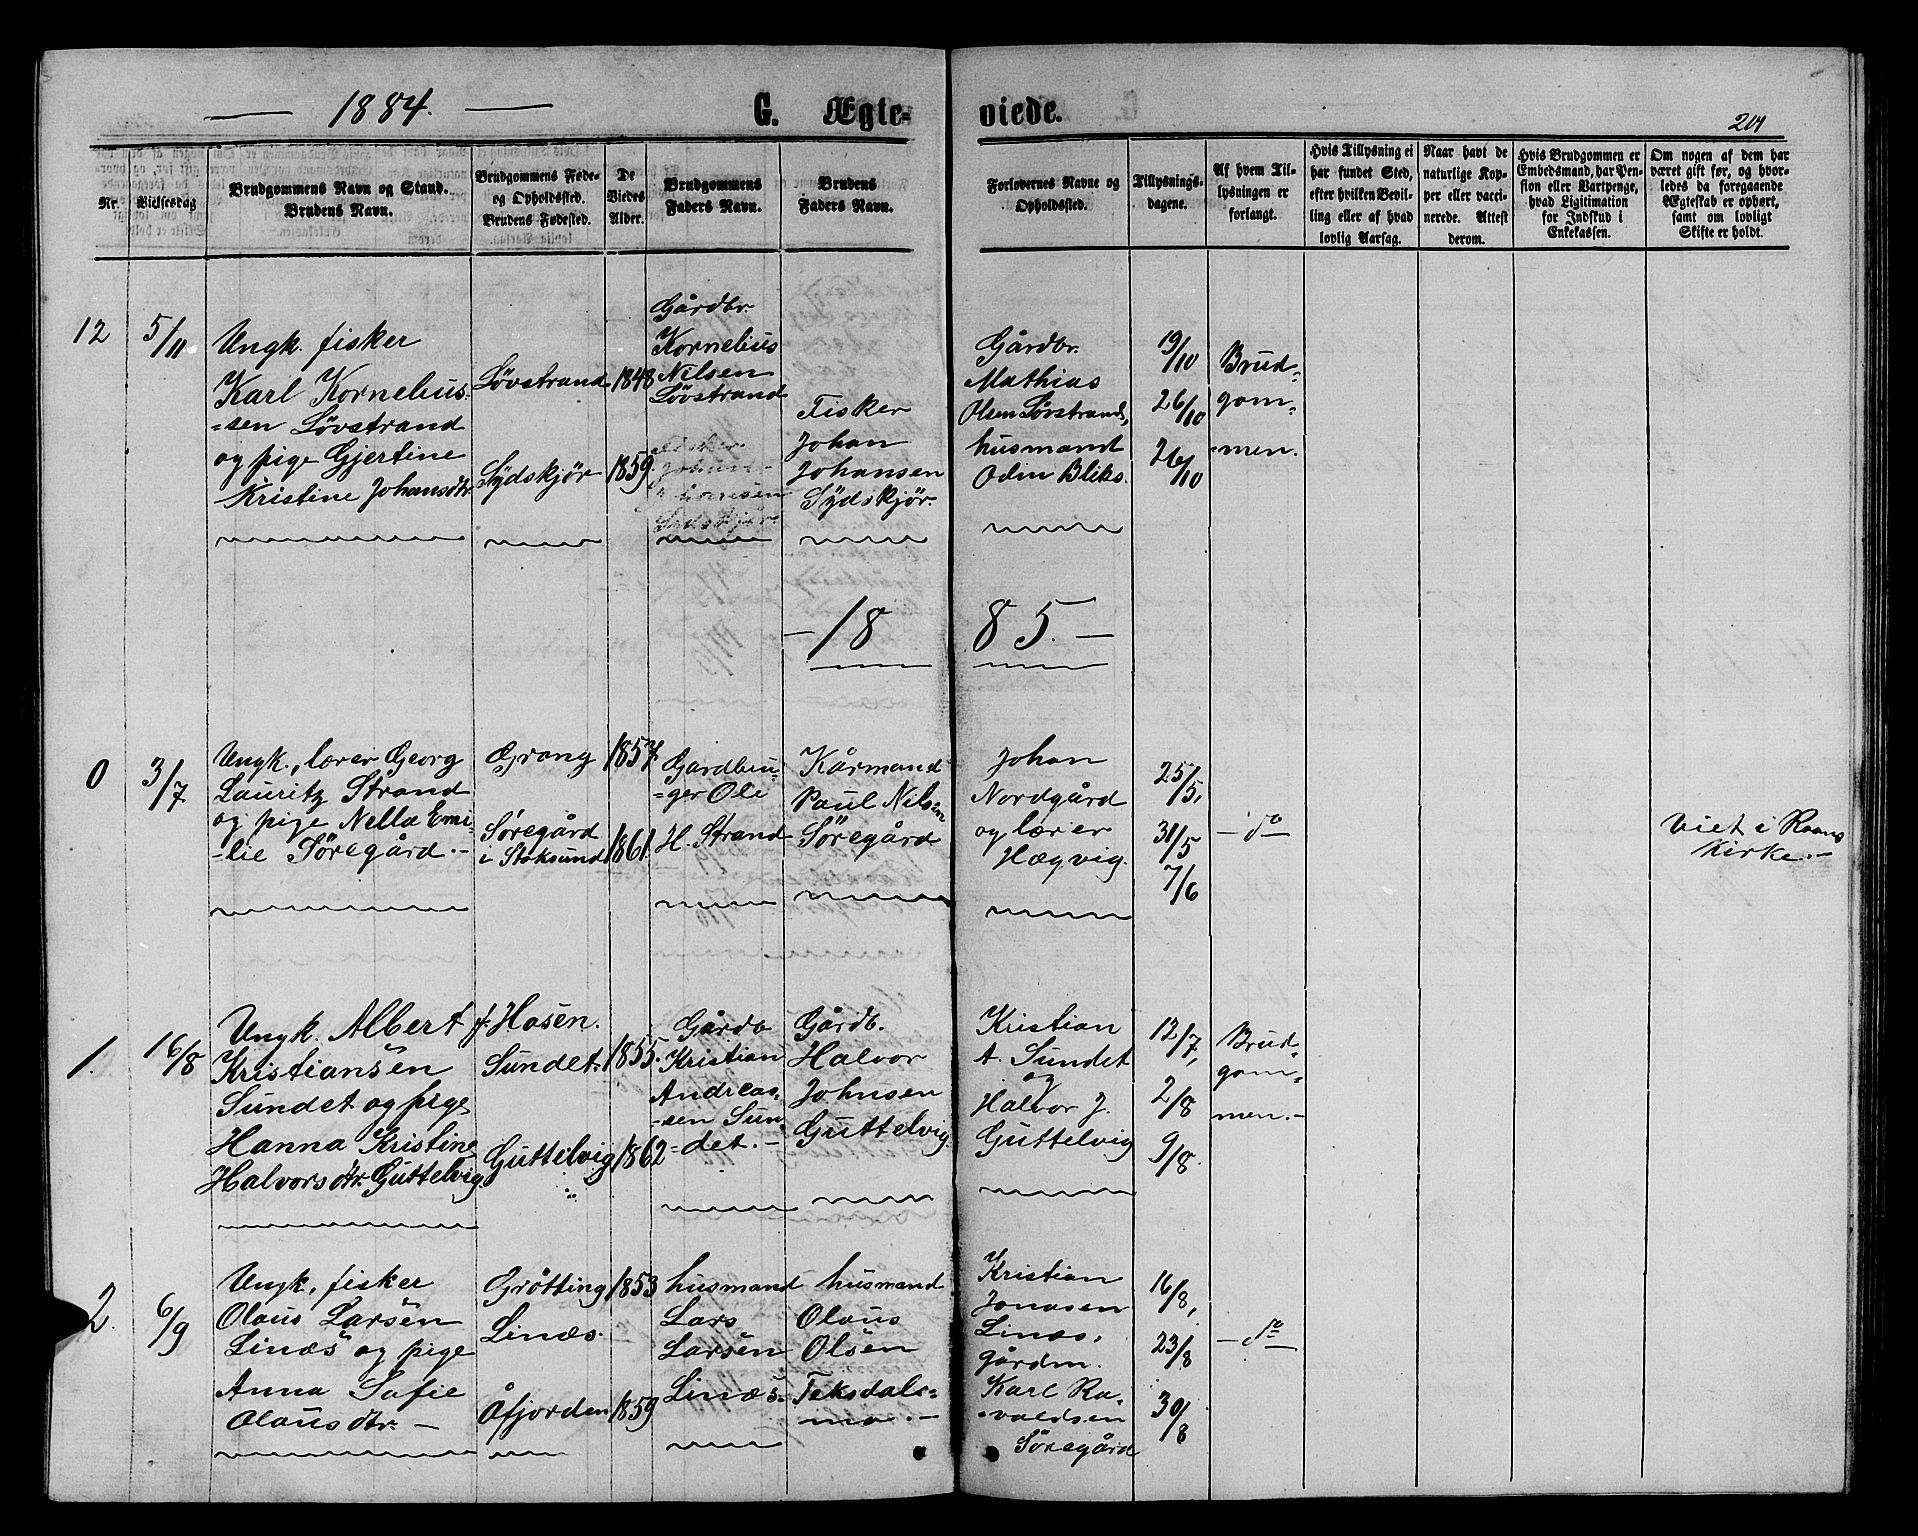 — 1884. —
G. Ægte-
viede.
Nr.
Vielsesdag
Brudgommens Navn og Stand.
Brudens Navn.
Brudgommens Føde-
og Opholdssted.
Brudens Fødested.
De
Viedes
Alder.
Brudgommens
Faders Navn.
Brudens
Faders Navn.
Forlovernes Navne og
Opholdssted.
Tillysnings-
dagene.
Af hvem Til-
lysningen er
forlangt.
Hvis Tillysning ei
har fundet Sted,
efter hvilken Bevil-
ling eller af hvad
lovlig Aarsag.
Naar havt de
naturlige Kop-
per eller vacci-
nerede. Attest
derom.
Hvis Brudgommen er
Embedsmand, har Pen-
sion eller Vartpenge,
hvad Legitimation
for Indskud i
Enkekassen.
Om nogen af dem har
været gift før, og hvor-
ledes da foregaaende
Ægteskab er ophørt,
samt om lovligt
Skifte er holdt.
12
5/11
Ungk. fisker
Karl Kornelius-
-sen Løvstrand
og pige Gjertine
Kristine Johansdtr.
Løvstrand
Sydskjør
1848
1859.
Gårdbr.
Kornelius
Nilsen
Løvstrand
Fisker
Johan
Johansen
Sydskjør.
Gårdbr.
Mathias
Olsen Løvstrand,
husmand
Odin Bliks.
19/10
26/10
26/10
Brud-
gom-
-men.
—18
85.—
0
3/7
Ungk., lærer Georg
Lauritz Strand
og pige Nella Emi-
-lie Søregård.—
Grong
Søregård
i Stoksund
1857.
1861.
Gardbru-
-ger Ole
H. Strand
Kårmand
Paul Nilsen
Søregård
Johan
Nordgård
og lærer
Hægvig.
25/5,
31/5
7/6
— do
Viet i Roans
Kirke.—
1.
16/8
Ungk. Albert
Kristiansen
Sundet og pige
Hanna Kristine
Halvorsdtr. Guttelvig.
f. Hosen.
Sundet.
Guttelvig
1855.
1862
Gårdb
Kristian
Andreas-
-sen Sun-
-det.—
Gårdb.
Halvor
Johnsen
Guttelvig.
Kristian
A. Sundet
og
Halvor J.
Guttelvig
12/7,
2/8
9/8.
Brud-
gom-
men.—
2.
6/9
Ungk., fisker
Olaus Larsen
Linæs og pige
Anna Sofie
Olausdtr.—
Grøtting
Linæs.
Åfjorden
1853
1859
husmand
Lars
Larsen
Linæs.
husmand
Olaus
Olsen
Teksdals-
mo.—
Kristian
Jonasen
Linæs,
gårdm.
Karl Ra-
-valdsen
Søregård
16/8,
23/8
30/8
— do